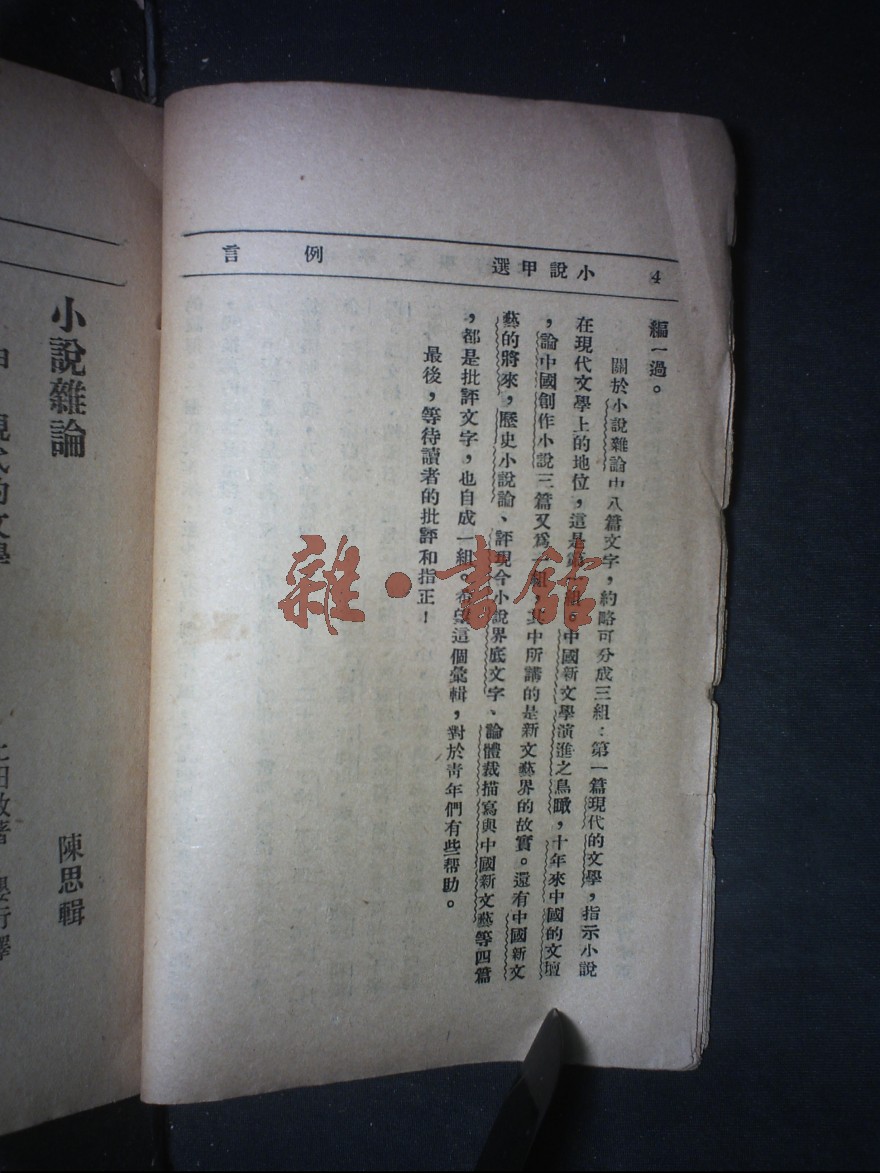 4 小說甲選 例言
編一過。
關於小說雜論中八篇文字，約略可分成三組：第一篇現代的文學，指示小說
在現代文學上的地位，這是第一組。中國新文學演進之鳥瞰，十年來中國的文壇
，論中國創作小說三篇又爲一組，其中所講的是新文藝界的故實。還有中國新文
藝的將來，歷史小說論、評現今小說界底文字、論體裁描寫與中國新文藝等四篇
，都是批評文字，也自成一組。希望這個彙輯，對於靑年們有些帮助。
最後，等待讀者的批評和指正！
小說雜論
陳思輯
雜·書館